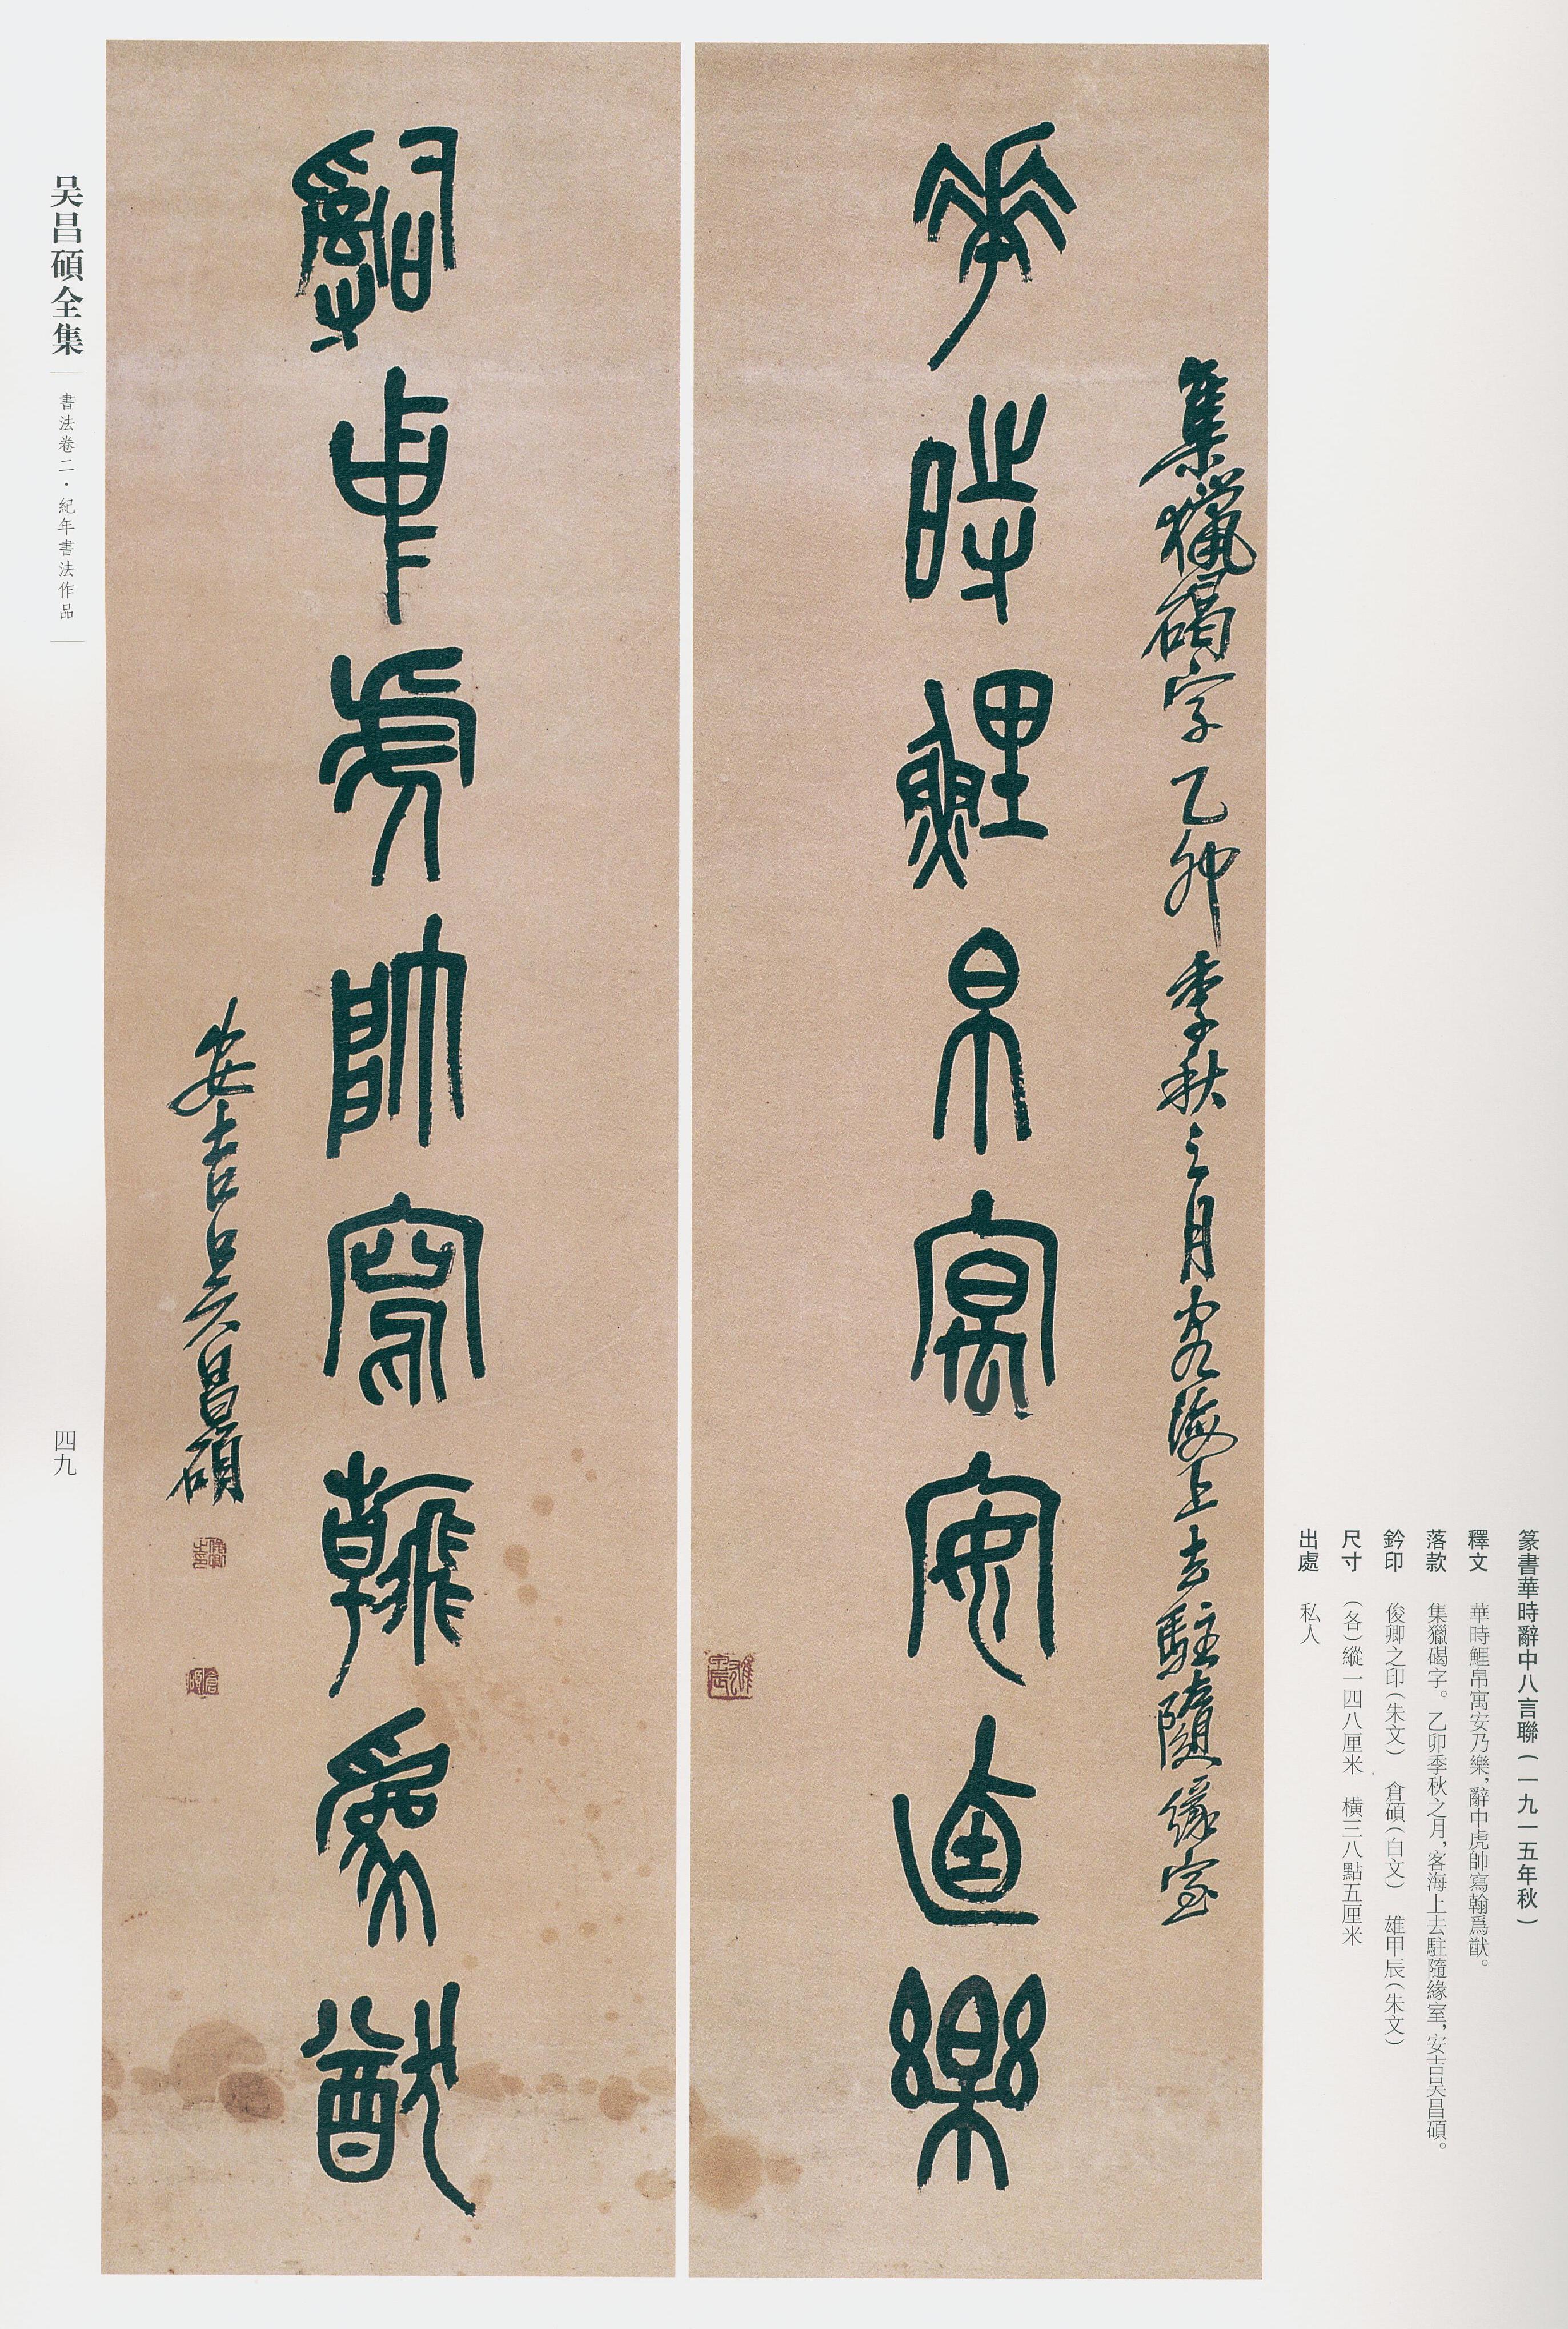 篆書華時辭中八言聯(一九一五年秋)
釋文 華時鯉帛寓安乃樂,辭中虎帥寫翰爲猷。
落款 集獵碣字。乙卯季秋之月,客海上去駐隨緣室,安吉吴昌碩。
鈐印 俊卿之印(朱文) 倉碩(白文) 雄甲辰(朱文)
尺寸 (各)縱一四八厘米 橫三八點五厘米
出處 私人
集獵碣字乙卯季秋之月客海上去駐隨緣室
華時鯉帛寓安乃樂
雄甲辰
辭中虎帥寫翰爲猷
安吉吴昌碩
俊卿之印
倉碩
吴昌碩全集
書法卷二·紀年書法作品
四九